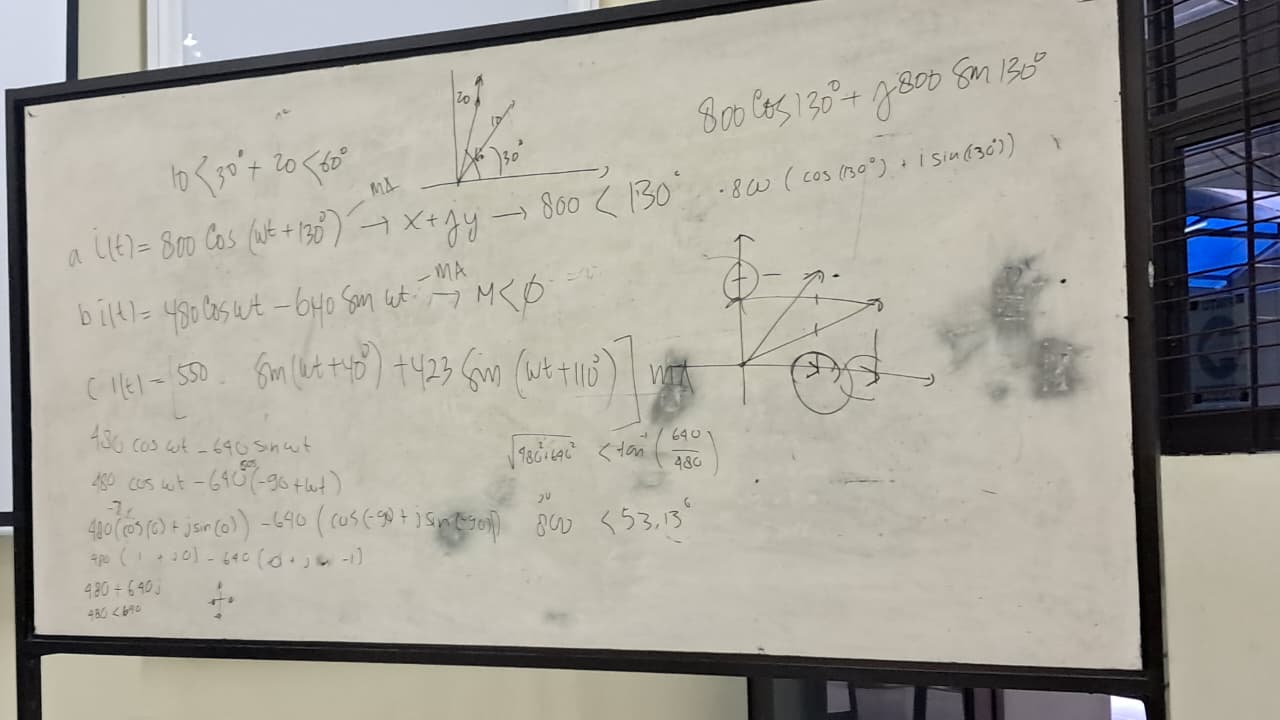 10<30° + 20<60°
20
10
30°
800 Cos 130° + j 800 Sin 130°
a i(t) = 800 Cos (wt + 130°) mA → x + jy → 800 < 130°
800 ( cos (130°) + i sin (130°))
b i(t) = 480 Cos wt - 640 Sin wt mA → M < Ø
C i(t) = [550 Sin (wt + 40°) + 423 Sin (wt + 110°)] mA
480 cos wt - 640 sin wt
480 cos wt - 640 cos (-90 + wt)
480 (cos(0) + j sin(0)) - 640 (cos(-90 + j sin(-90))
480 ( 1 + j0) - 640 (0 + j -1)
480 + 640j
480 < 640
√480² + 640² < tan⁻¹ (640/480)
800 < 53,13°